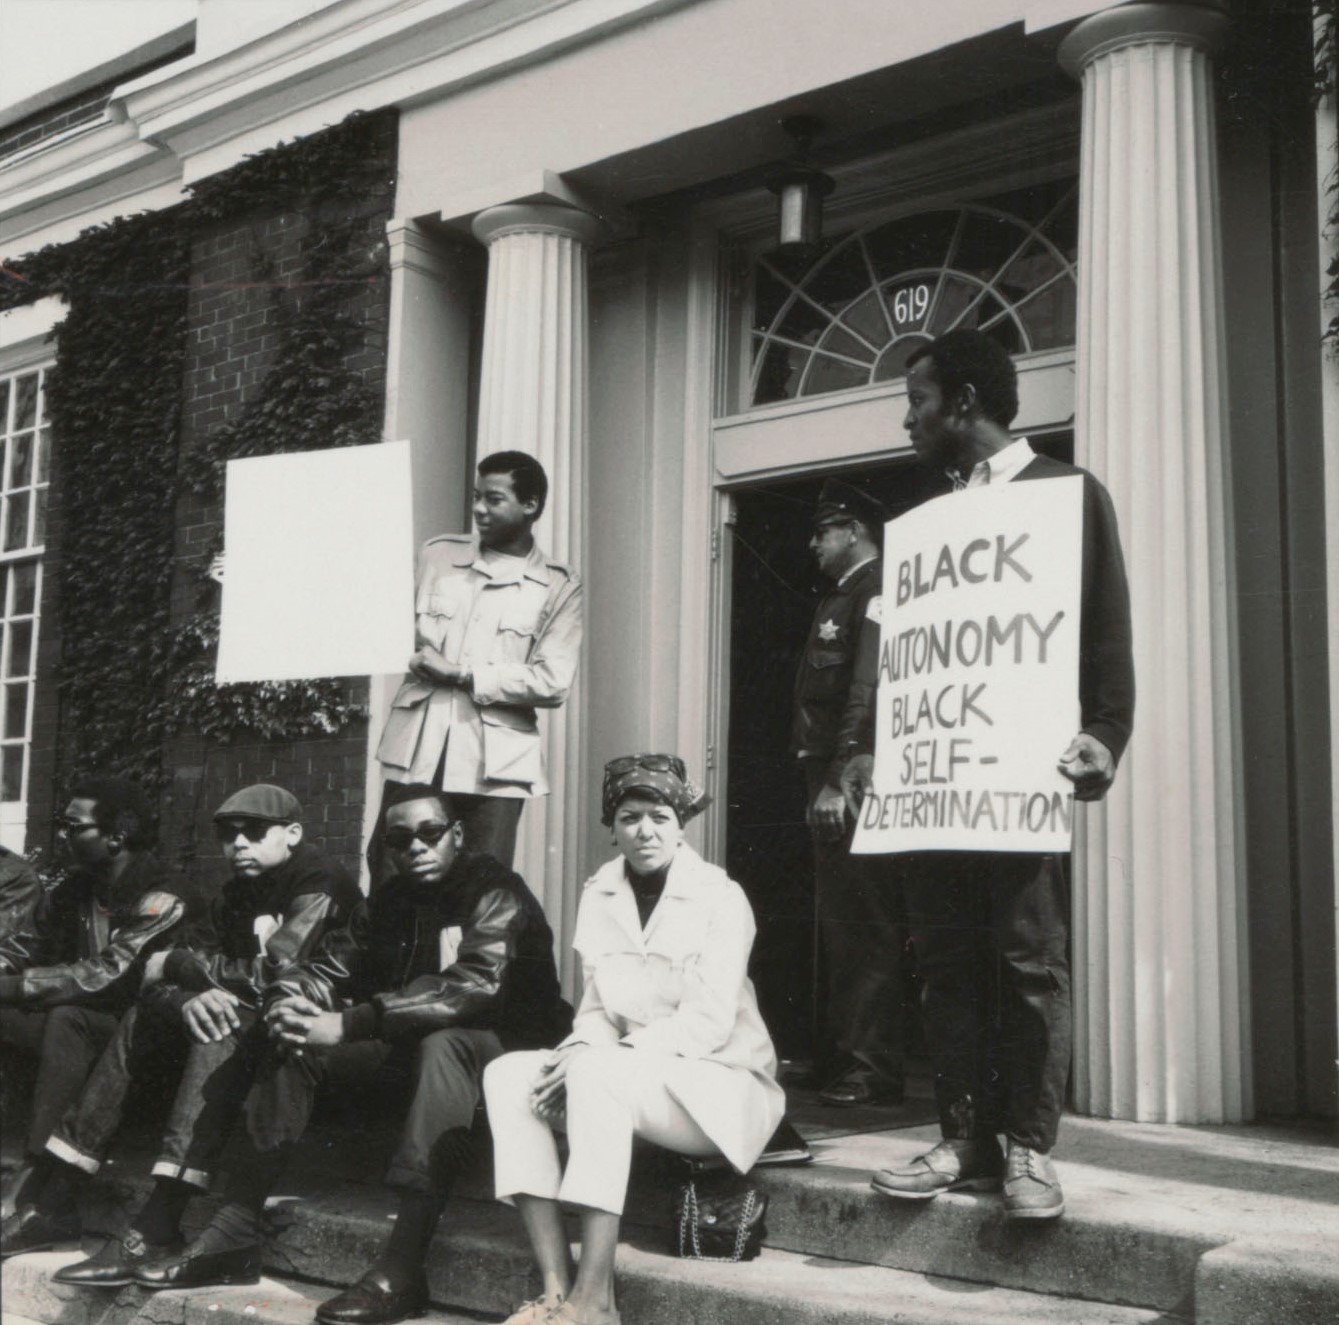 619
BLACK
AUTONOMY
BLACK
SELF-
DETERMINATION